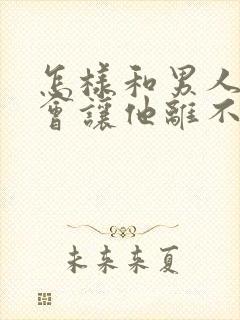 怎樣和男人
會讓他離不
未來来夏